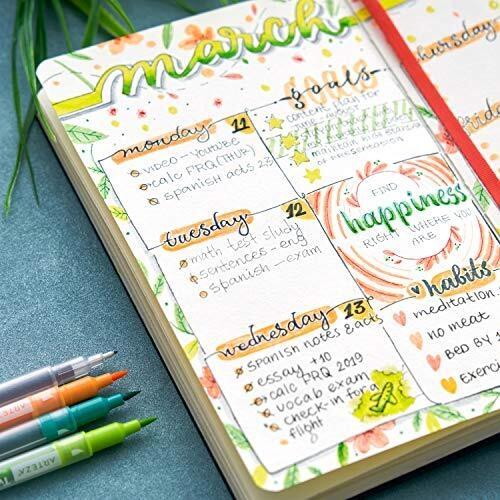 march
monday 11
video - Youtube
calc PRQ (THUR)
spanish acts 2-3
goals
content plan for
maintain
of presentation
tuesday 12
math test study
sentences - eng
spanish - exam
FIND
happiness
RIGHT WHERE YOU
ARE
wednesday 13
spanish notes & acts
essay +10
calc PRQ 2019
vocab exam
check-in for a
flight
habits
meditation
no meat
BED BY
Exerci
hursday
ARTEZA
ARTEZA